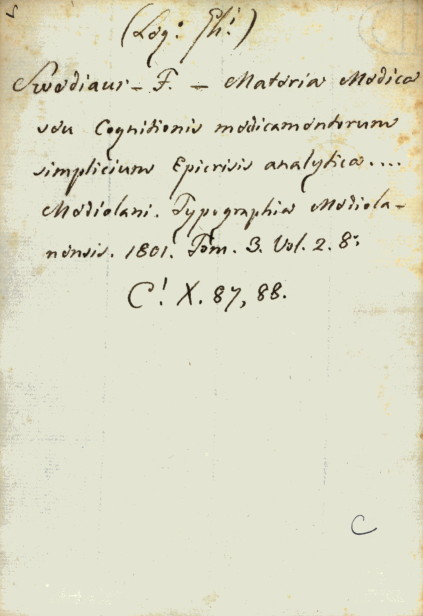 (Leg: Ph!)
Swediaur - F. - Materia Medica
seu Cognitionis medicamentorum
simplicium Epicrisis analytica....
Mediolani. Typographia Mediola-
nensis. 1801. Tom. 3. Vol. 2. 8:
C! X. 87, 88.
C